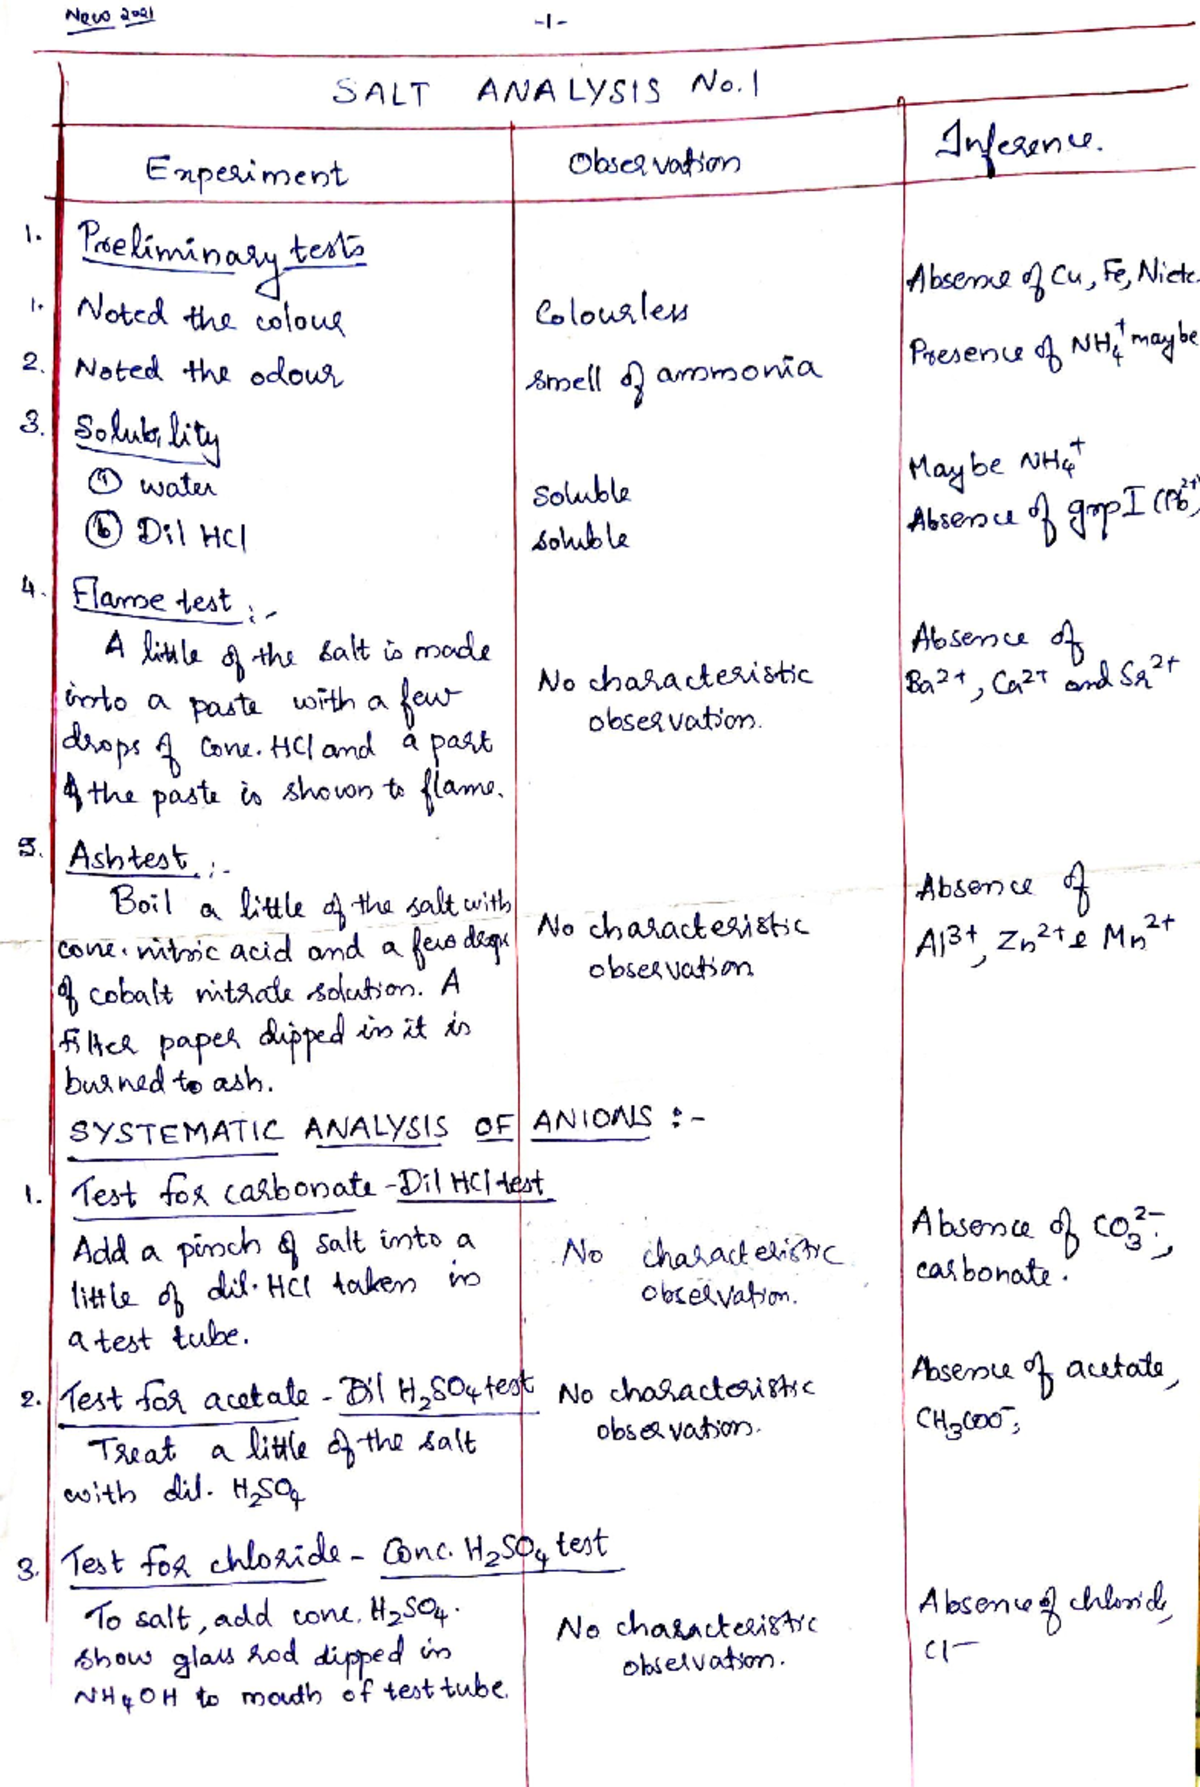 New 2021
-1-
SALT ANALYSIS No.1
Experiment Observation Inference.
1. Preliminary tests
1. Noted the colour Colourless Absence of Cu, Fe, Ni etc.
2. Noted the odour smell of ammonia Presence of NH4+ maybe
3. Solubility
(a) water Soluble Maybe NH4+
(b) Dil HCl soluble Absence of grp I (Pb2+)
4. Flame test :-
A little of the salt is made Absence of
into a paste with a few No characteristic Ba2+, Ca2+ and Sr2+
drops of conc. HCl and a part observation.
of the paste is shown to flame.
5. Ash test :-
Boil a little of the salt with Absence of
conc. nitric acid and a few drops No characteristic Al3+, Zn2+ & Mn2+
of cobalt nitrate solution. A observation
filter paper dipped in it is
burned to ash.
SYSTEMATIC ANALYSIS OF ANIONS :-
1. Test for carbonate - Dil HCl test
Add a pinch of salt into a No characteristic Absence of CO3 2-,
little of dil. HCl taken in observation. carbonate.
a test tube.
2. Test for acetate - Dil H2SO4 test No characteristic Absence of acetate,
Treat a little of the salt observation. CH3COO-,
with dil. H2SO4
3. Test for chloride - Conc. H2SO4 test
To salt, add conc. H2SO4. No characteristic Absence of chloride,
show glass rod dipped in observation. Cl-
NH4OH to mouth of test tube.